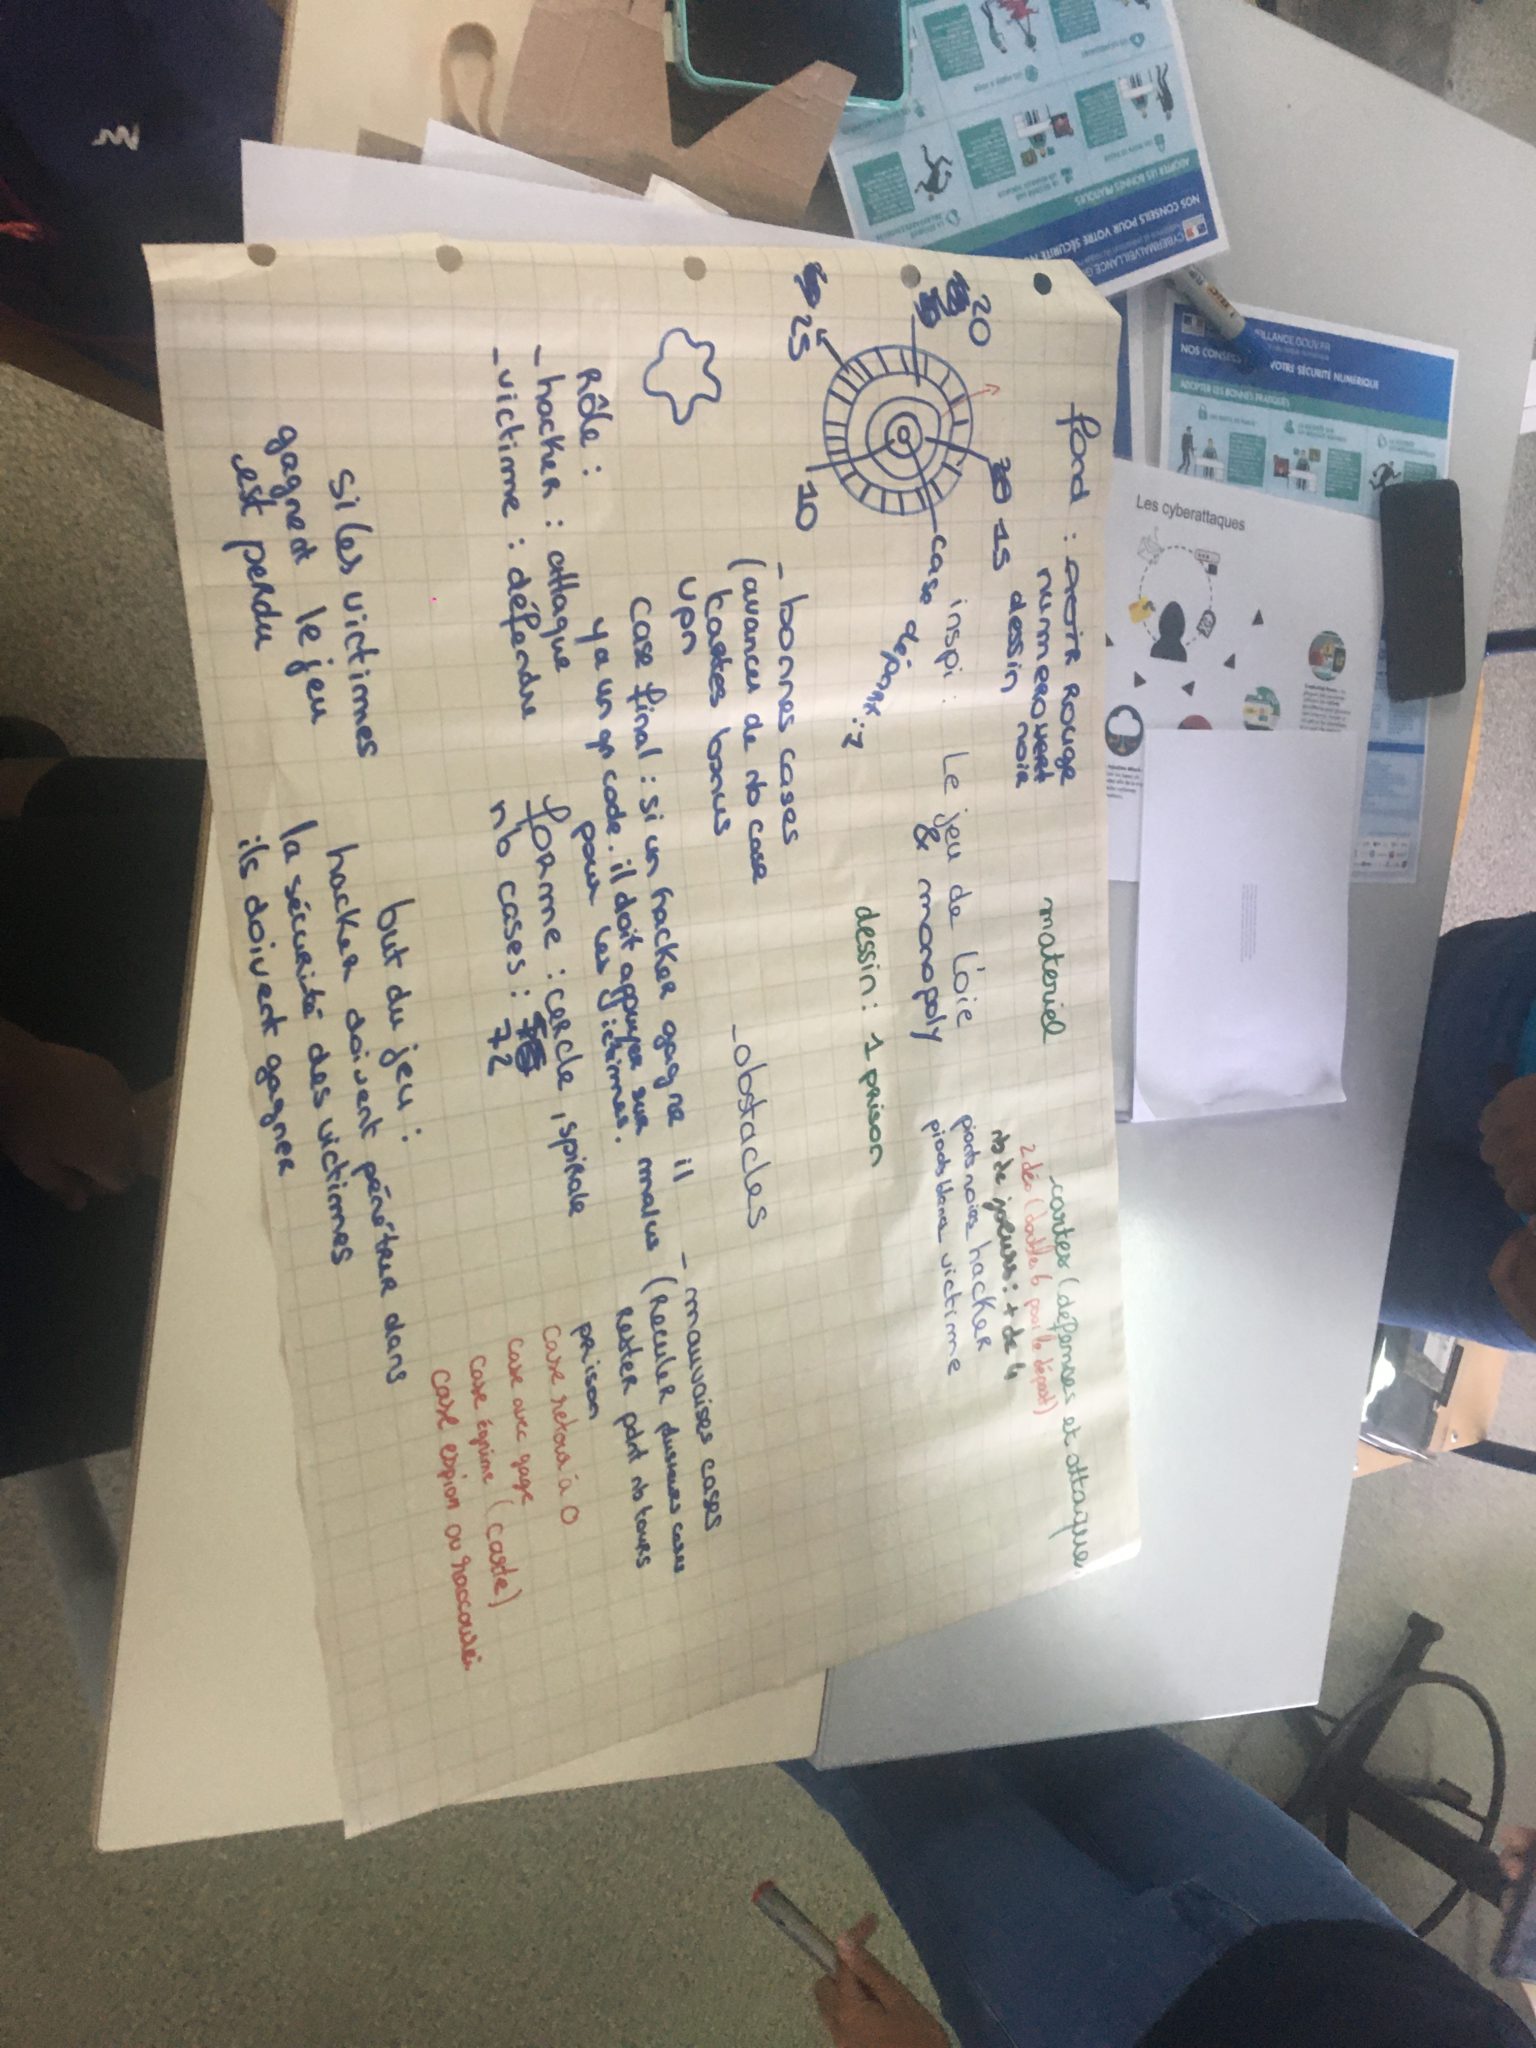 fond : noir rouge
numéro vert
dessin noir
materiel
cartes (défenses et attaque)
2 dés (double 6 pour le départ)
nb de joueurs : + de 4
pions noirs hacker
pions blancs victime
inspi : Le jeu de l'oie
& monopoly
dessin : 1 prison
20
15
25
10
case départ : 2
- bonnes cases
(avancer de nb case
cartes bonus
vpn
- obstacles
- mauvaises cases
(reculer plusieurs cases
rester pdnt nb tours
prison
case retour à 0
case avec gage
case énigme (carte)
case espion ou raccourci
case final : si un hacker gagne il
y a un qr code. il doit appuyer sur malus
pour les victimes.
Rôle :
- hacker : attaque
- victime : défendre
forme : cercle, spirale
nb cases : 72
but du jeu :
hacker doivent pénétrer dans
la sécurité des victimes
ils doivent gagner
si les victimes
gagnent le jeu
est perdu
Les cyberattaques
CYBERMALVEILLANCE.G
NOS CONSEILS POUR VOTRE SÉCURITÉ
ADOPTER LES BONNES PRATIQUES
ILLANCE.GOUV.FR
NOS CONSEI
VOTRE SÉCURITÉ NUMÉRIQUE
ADOPTER LES BONNES PRATIQUES